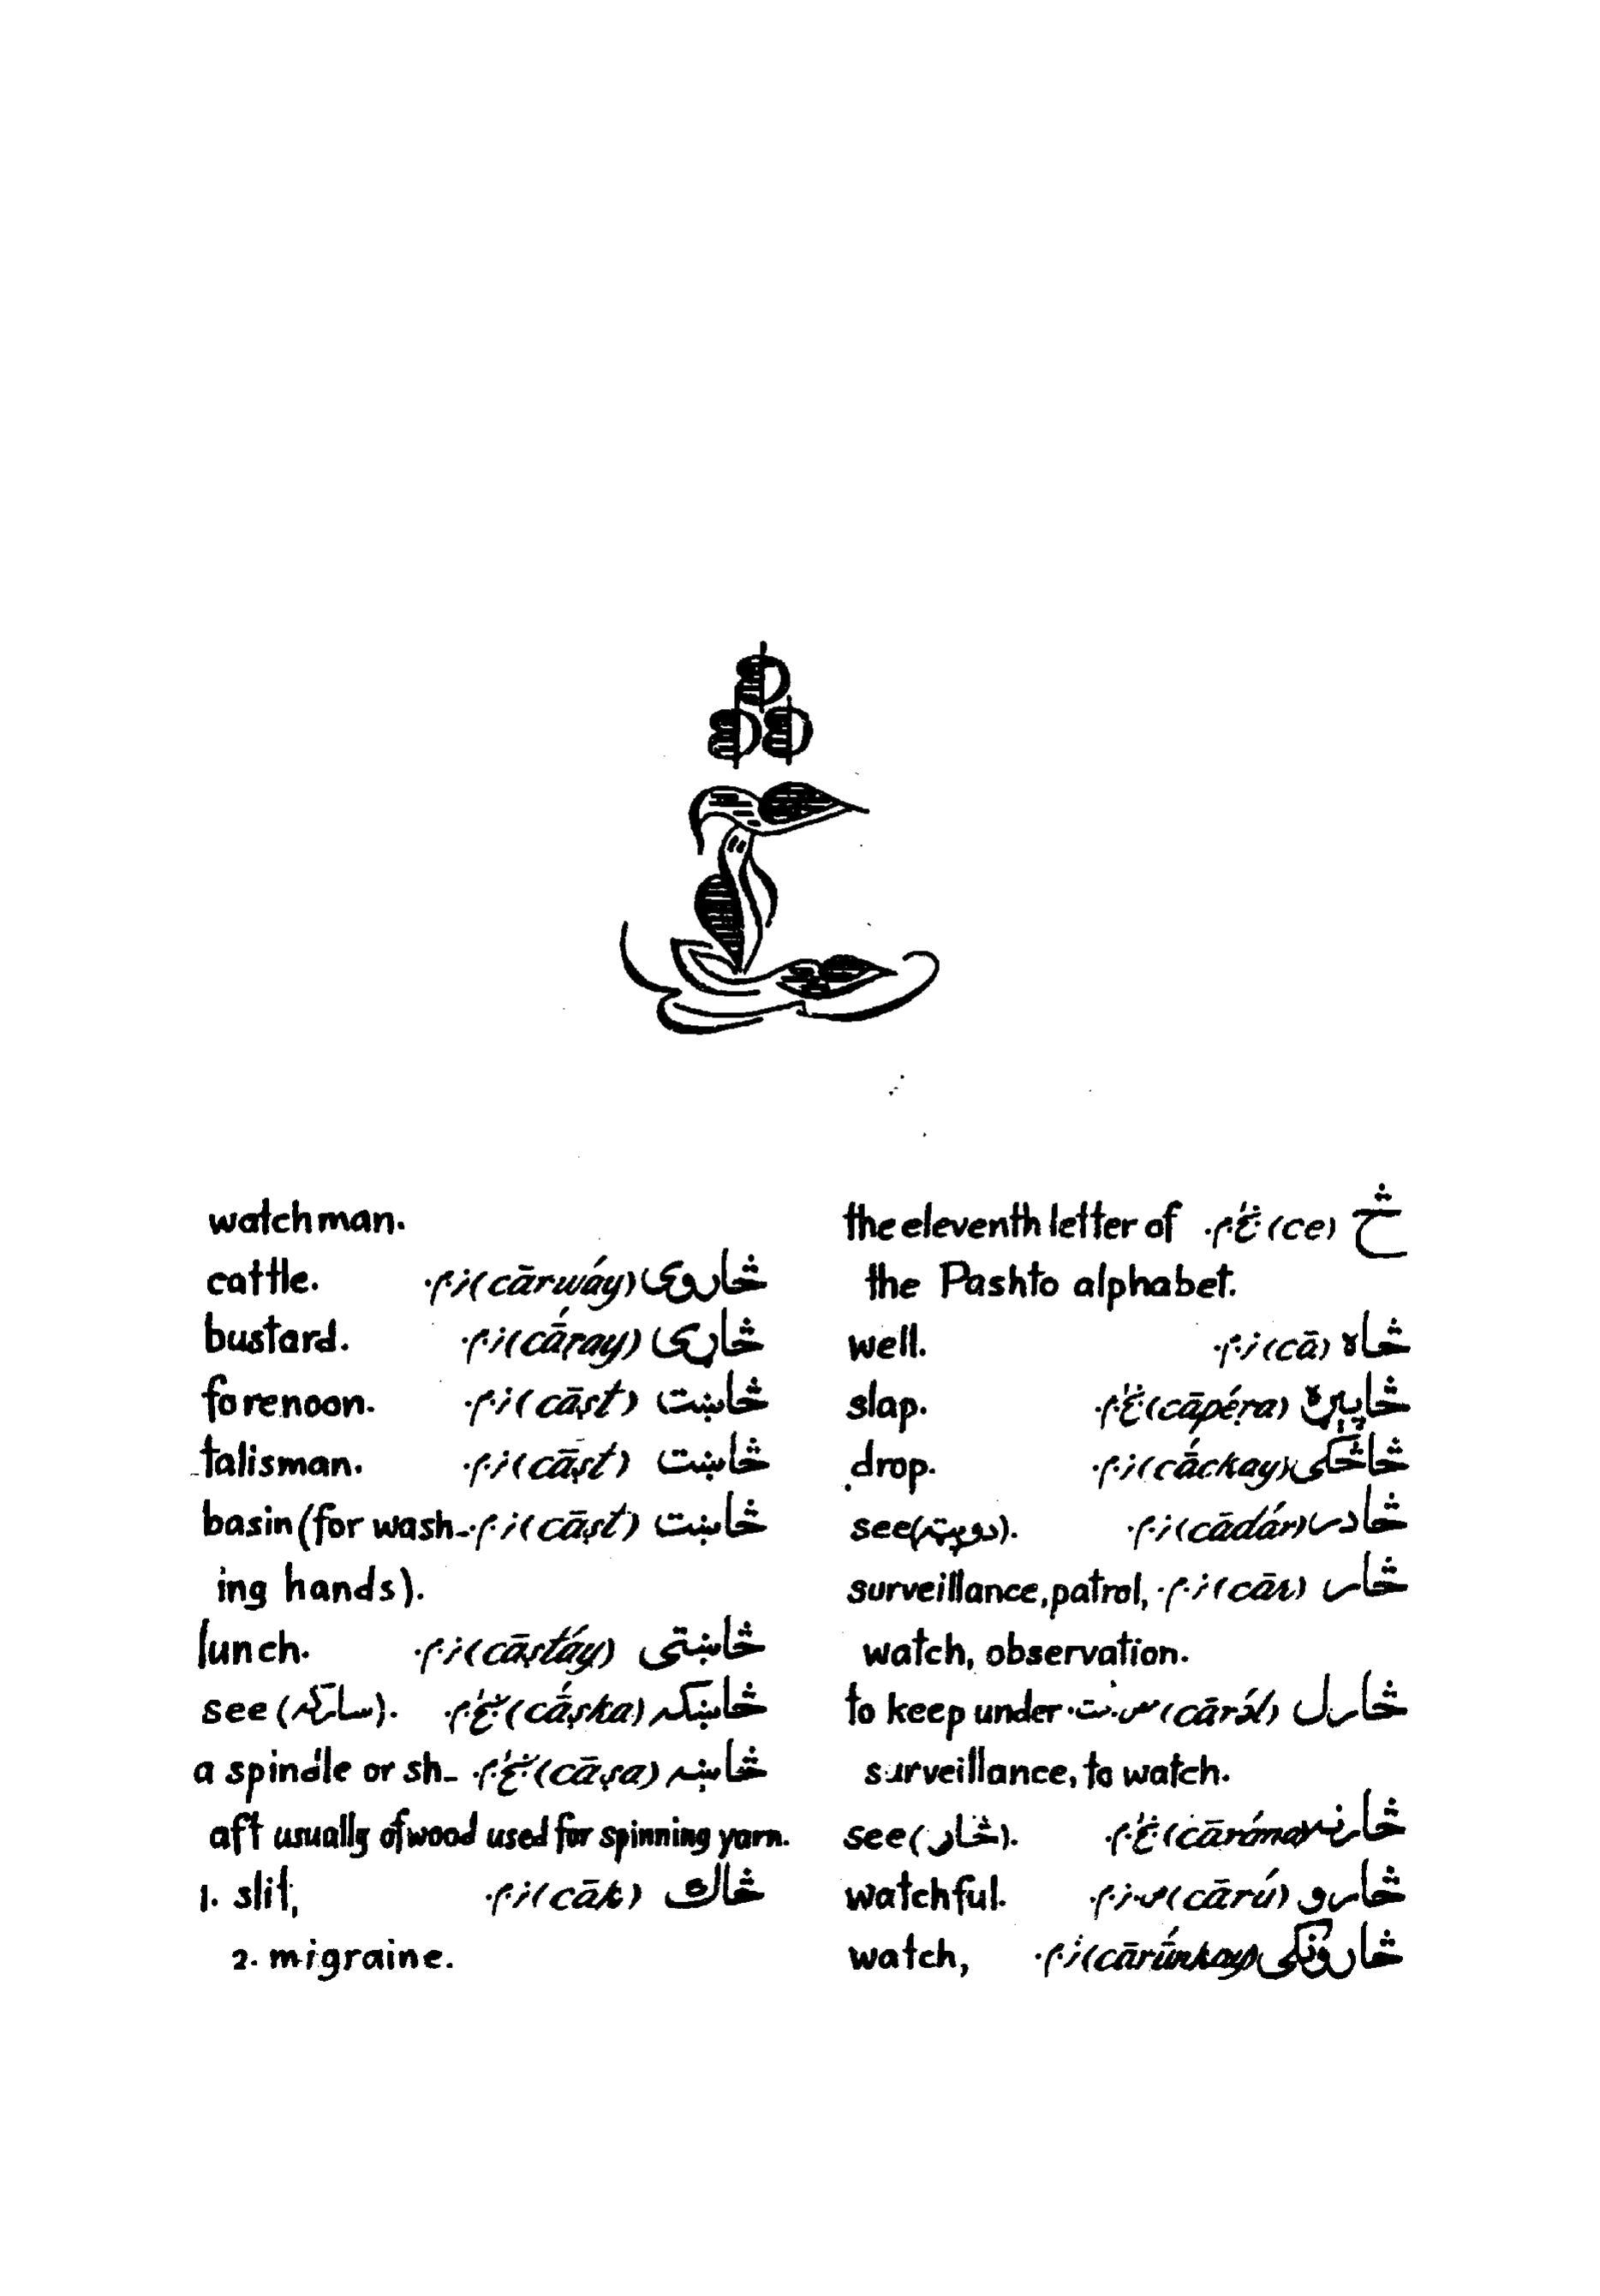 څ (ce) غ.م. the eleventh letter of
the Pashto alphabet.
څاه (cā) ن.م. well.
څاپېړه (cāpéṛa) غ.م. slap.
څاڅکی (cā́ckay) ن.م. drop.
څادر (cādár) ن.م. see (دوپټه).
څار (cār) ن.م. surveillance, patrol,
watch, observation.
څارل (cārə́l) to keep under
surveillance, to watch.
څارنه غ.م. see (څار).
څارو (cārú) watchful.
څارونکی (cārū́nkay) ن.م. watch,
watchman.
څاروی (cārwáy) ن.م. cattle.
څاړی (cā́ṛay) ن.م. bustard.
څاښت (cāṣt) ن.م. forenoon.
څاښت (cāṣt) ن.م. talisman.
څاښت (cāṣt) ن.م. basin (for wash-
ing hands).
څاښتی (cāṣtáy) ن.م. lunch.
څاښکه (cā́ṣka) غ.م. see
څاښه (cāṣa) غ.م. a spindle or sh-
aft usually of wood used for spinning yarn.
څاك (cāk) ن.م. 1. slit,
2. migraine.